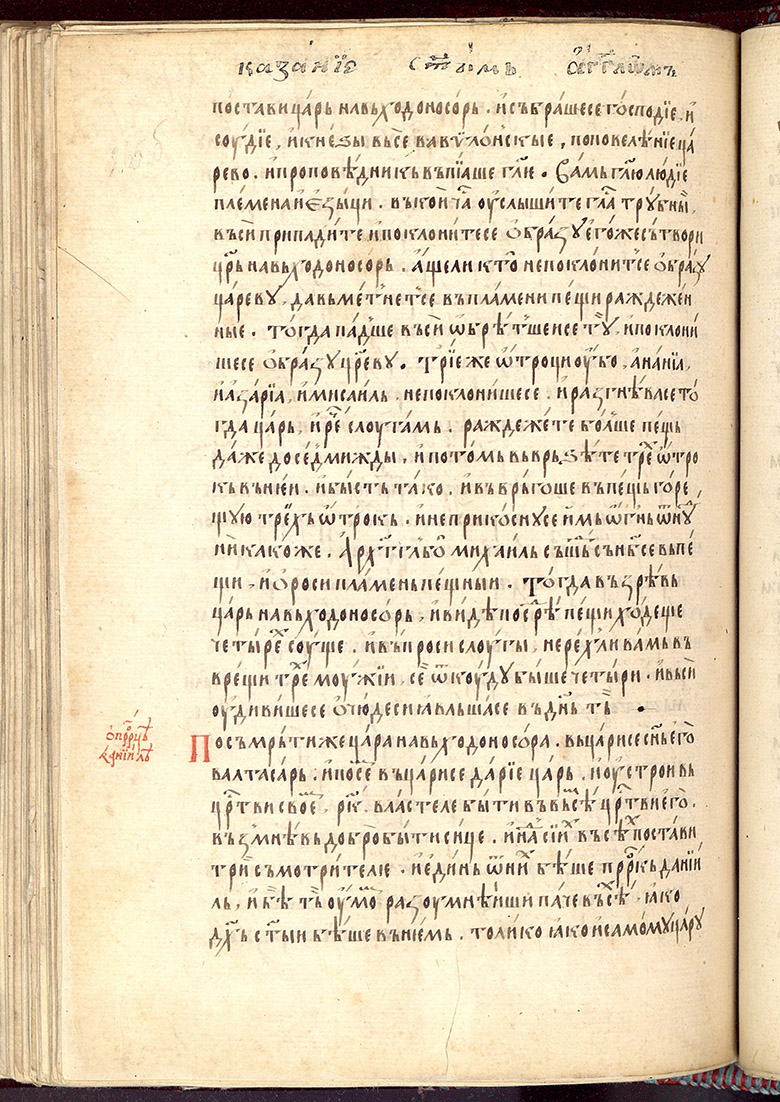 казанїе ст҃ымь а҆гг҃лѡмь
постави ца́рь навьходоносо́рь . и҆ събра́шесе го́сподїе , и҆
соу́дїе , и҆ кне́ѕы вьсе вавѷло́нскые , по повелѣ́нїе ца
рево . и҆ проповѣ́дникь въпїа́ше гл҃ю . Ва́мь гл҃ю лю́дїе
пле́мена и҆ ѥзы́ци . въ кои ча҃ оу҆слы́шите гла҃ тру́бны ,
въси́ припади́те и҆ поклони́тесе о҆́бразу его́же сътвори
цр҃ь навьходоносо́рь . а҆́ще ли кто̀ непоклони́тсе о҆́бразу
ца́реву , да вьме́тнетсе въ пла́мени пе́щи раждеже́н
ные . То́гда па́дше въси́ ѡ҆брѣ́тшеисе тꙋ , и҆ поклони́
шесе о҆́бразу цр҃еву . Трїе́ же ѿ́роци оу҆́бо , ана́нїа ,
и҆ аза́рїа , и҆ мисаи́ль , непоклони́шесе . и҆ разгнѣ́васе то́
гда ца́рь , и҆ ре҃ слоуга́мь . раждеже́те бо́лше пе́щь
да́же до се́дмижды , и҆ пото́мь вьврь́ѕѣте тре́х ѡ҆тро
кь въ ню́ . и҆ бы́сть та́ко . и҆ въврьго́ше въ пе́щь го́ре
щую тре́хь ѡ҆трокь . и҆ не прикосну́се и҆́мь ѡ҆́гнь
ни́ка́коже . А҆рхг҃гль бо̀ михаи́ль съше́ съ нб҃се вь пе́
щи , и҆ ороси пла́мень пе́щныи . То́гда възрѣ́вь
ца́рь навьходоносо́рь , и҆ ви́дѣ посре́ пе́щи хо́деще
четы́ре соу́ще . и҆ въпроси слоугы́ , не ре́х ли ва́мь въ
врещи тре́ моу́жїи , се́ ѿкоу́ду бы́ше четы́ри . и҆ въси́
оу҆диви́шесе о҆ чю́деси ꙗ҆́вльшасе въ дн҃ь ть .
о҆ прⷪ҇рцѣ данїи́лѣ
По съмрь́ти же ца́ра навьходоносо́ра . въцари́се сн҃ь его̀
валтаса́рь . и҆ посе́ въцари́се да́рїе ца́рь , и҆ оу҆строи вь
цр҃тви свое҆ , рк҃ . вла́стеле бы́ти въ вьсѣ́ цр҃тви его̀ .
възмнѣ́ вь добро̀ бы́ти си́це . и҆ на́ сїи́х въсѣ́х поста́ви
три́ съмотри́телю . и҆ еди́нь ѿ ни́х бѣ́ше прⷪ҇ркь данїи́
ль , и҆ бѣ́ ть оу҆мо́ разоумнѣ́ишїи па́че въсѣ́х , ꙗ҆́ко
дх҃ь ст҃ыи бѣ́ше въ не́мь . толи́ко ꙗ҆́ко и҆ са́мому ца́ру